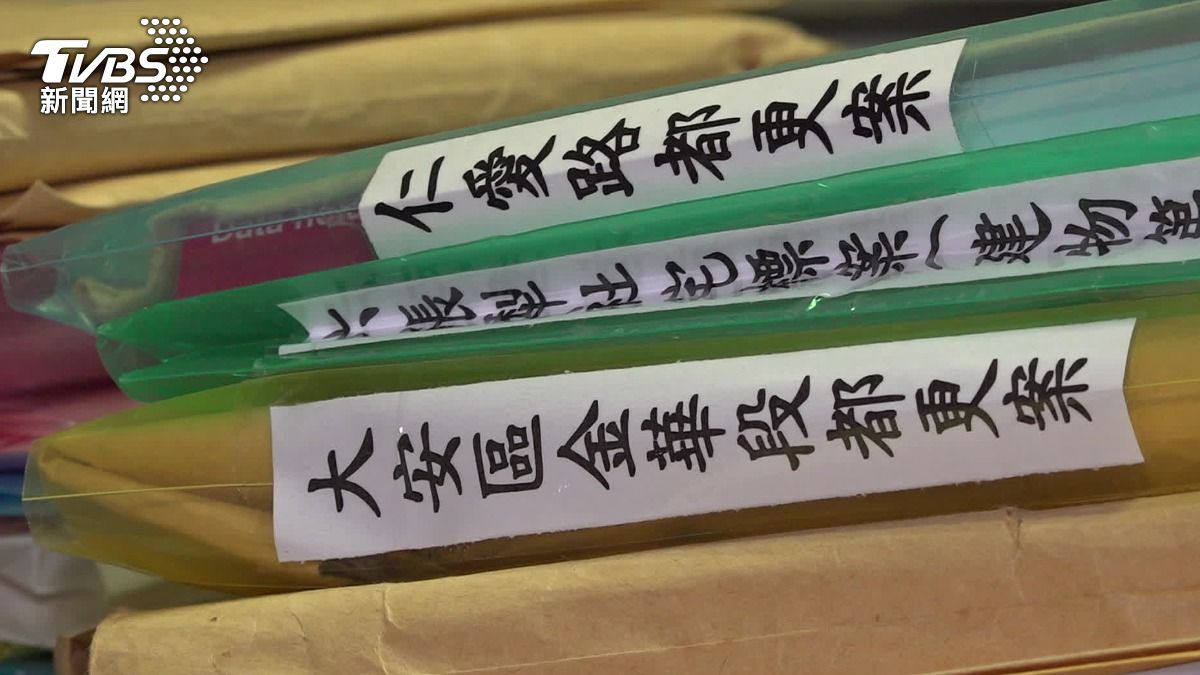 TVBS
新聞網
仁愛路都更案
六張犁社宅標案(建物
大安區金華段都更案